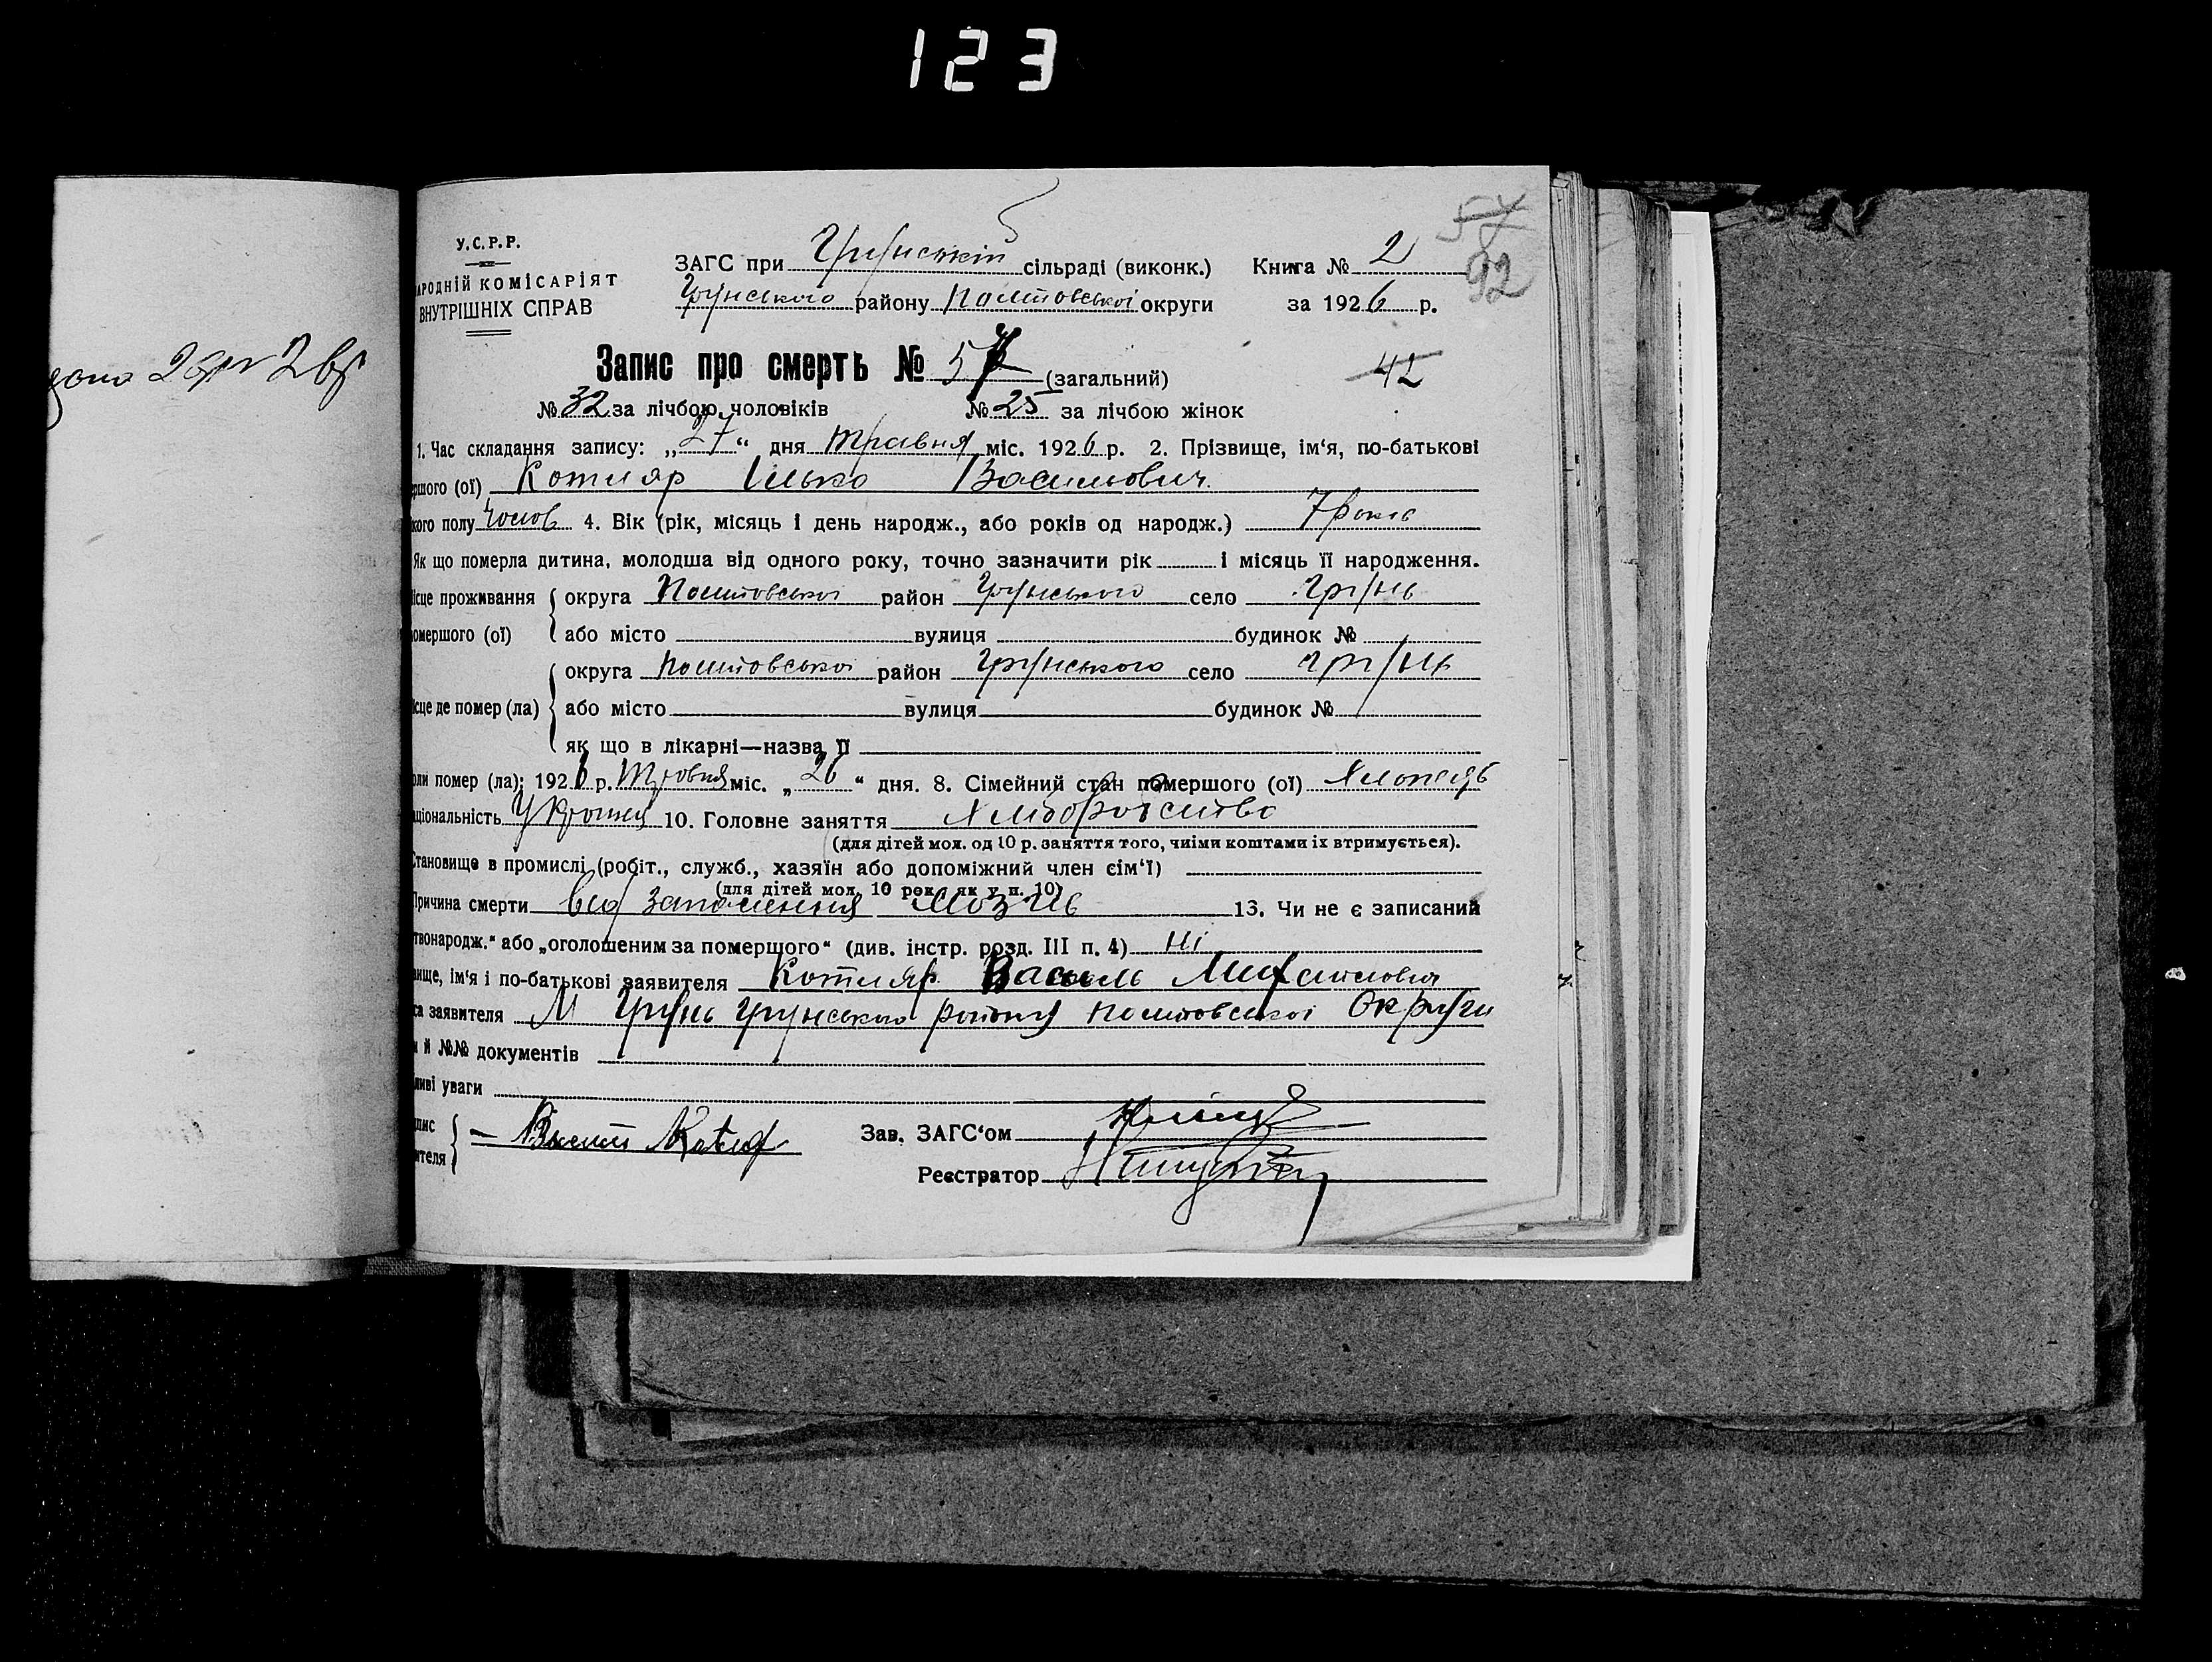 123
57
92
У.С.Р.Р.
АРОДНІЙ КОМІСАРІЯТ
ВНУТРІШНІХ СПРАВ
ЗАГС при Грунській сільраді (виконк.) Книга № 2
Грунського району Полтовської округи за 1926 р.
Запис про смерть № 57 (загальний) 42
№ 32 за лічбою чоловіків № 25 за лічбою жінок
1. Час складання запису: „27“ дня травня міс. 1926 р. 2. Прізвище, ім‘я, по-батькові
ршого (ої) Котляр Ілько Васильович
кого полу чолов 4. Вік (рік, місяць і день народж., або років од народж.) 7 років
Як що померла дитина, молодша від одного року, точно зазначити рік і місяць її народження.
ісце проживання округа Полтовської район Грунського село Грунь
омершого (ої) або місто вулиця будинок №
округа Полтовської район Грунського село Грунь
ісце де помер (ла) або місто вулиця будинок №
як що в лікарні—назва її
оли помер (ла): 1926 р. Травня міс. „26“ дня. 8. Сімейний стан помершого (ої) Хлопець
ціональність 10. Головне заняття Хліборобство
(для дітей мол. од 10 р. заняття того, чиїми коштами їх втримується).
Становище в промислі (робіт., служб., хазяїн або допоміжний член сім‘ї)
(для дітей мол. 10 рок. як у п. 10)
Причина смерти від запалення мозгів 13. Чи не є записаний
твонародж.“ або „оголошеним за помершого“ (див. інстр. розд. III п. 4) Ні
вище, ім‘я і по-батькові заявителя Котляр Василь
са заявителя М Грунь Грунського району Полтовської Округи
и й №№ документів
ливі уваги
пис Зав. ЗАГС‘ом
ителя
Реєстратор